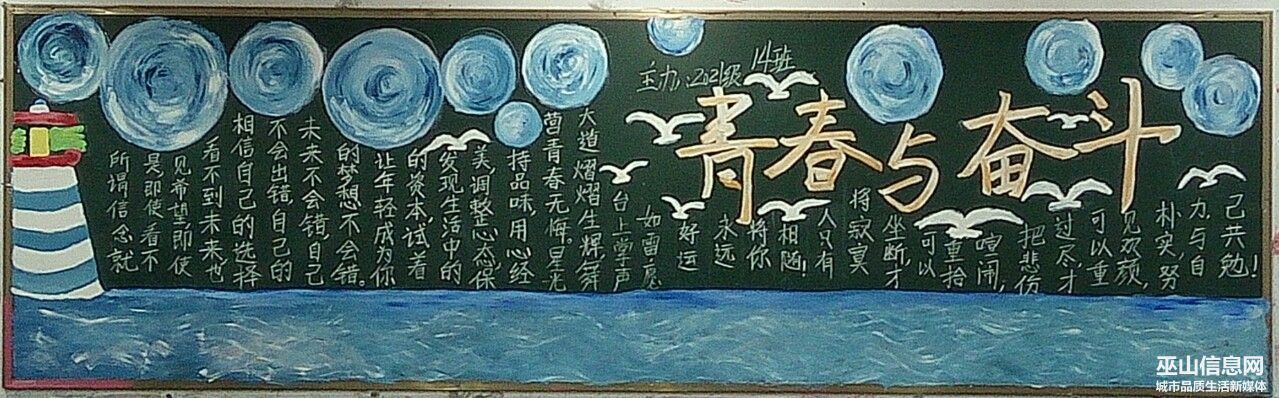 主力:2021级14班
青春与奋斗
所谓信念,就
是即使看不
见希望,即使
看不到未来也
相信自己的选择
不会出错,自己的
未来不会错,自己
的梦想不会错。
让年轻成为你
的资本,试着
发现生活中的
美,调整心态,保
持品味,用心经
营青春无悔。星光
大道熠熠生辉,舞
台上掌声
如雷愿
好运
永远
将你
相随!
人只有
将寂寞
坐断,才
可以
重拾
喧闹,
把悲伤
过尽,才
可以重
见欢颜,
朴实,努
力,与自
己共勉!
巫山信息网
城市品质生活新媒体